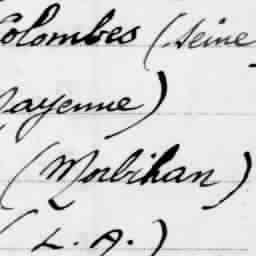 Colombes (Seine
Mayenne)
(Morbihan)
(L. A.)